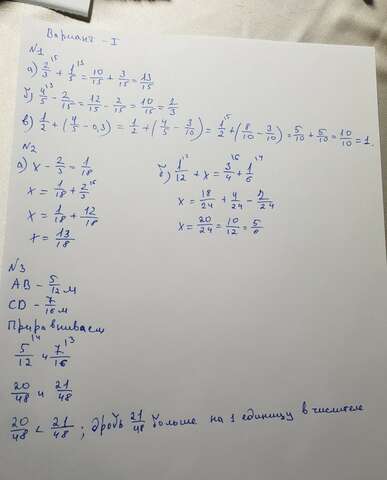 Вариант - I
№1
а) 2/3 + 1/5 = 10/15 + 3/15 = 13/15
б) 4/5 - 2/15 = 12/15 - 2/15 = 10/15 = 1/3
в) 1/2 + (4/5 - 0,3) = 1/2 + (4/5 - 3/10) = 1/2 + (8/10 - 3/10) = 5/10 + 5/10 = 10/10 = 1.
№2
а) x - 2/3 = 1/18
x = 1/18 + 2/3
x = 1/18 + 12/18
x = 13/18
б) 1/12 + x = 3/4 + 1/6
x = 18/24 + 4/24 - 2/24
x = 20/24 = 10/12 = 5/6
№3
AB - 5/12 м
CD - 7/16 м
Приравниваем
5/12 и 7/16
20/48 и 21/48
20/48 < 21/48 ; дробь 21/48 больше на 1 единицу в числителе